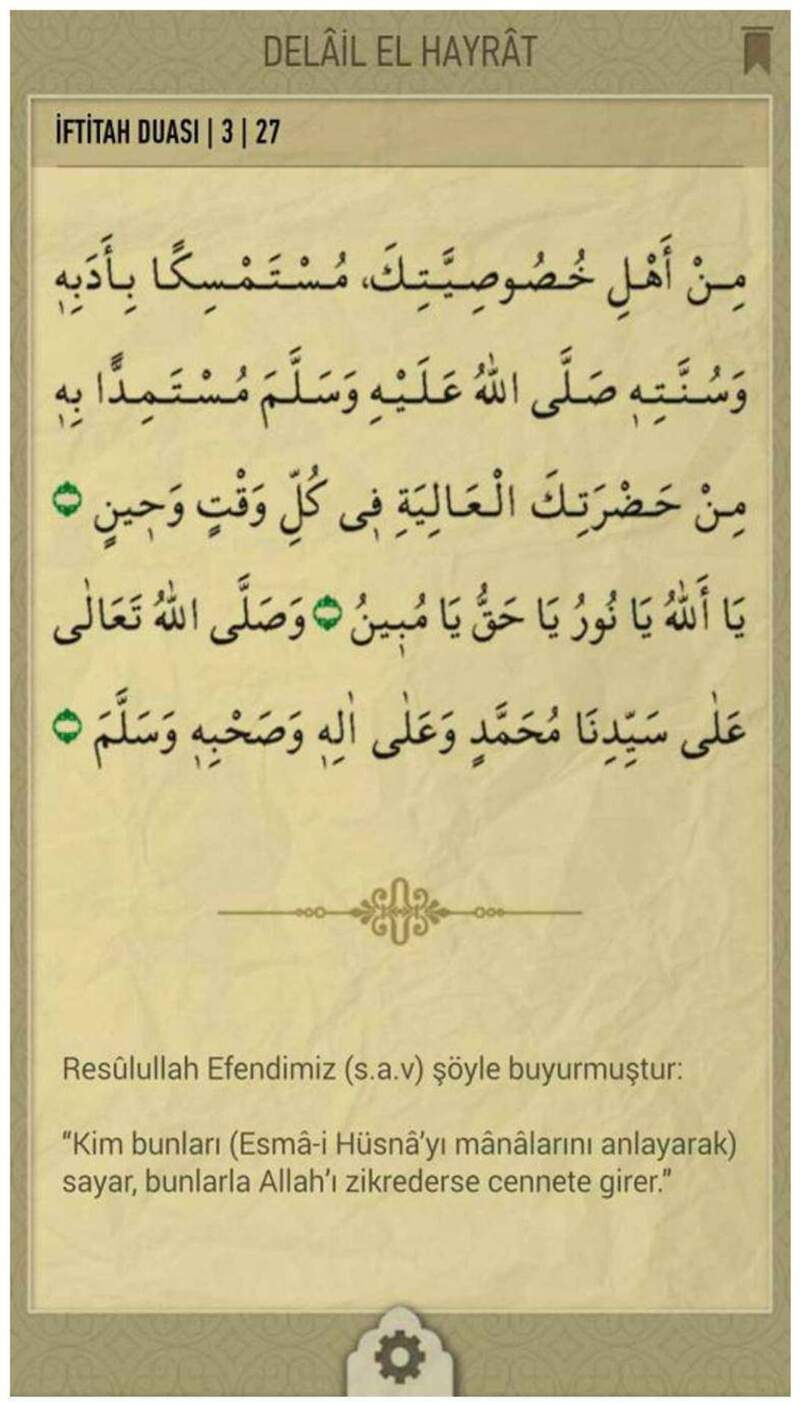 DELÂİL EL HAYRÂT
İFTİTAH DUASI | 3 | 27
مِنْ أَهْلِ خُصُوصِيَّتِكَ، مُسْتَمْسِكًا بِأَدَبِهٖ
وَسُنَّتِهٖ صَلَّى اللهُ عَلَيْهِ وَسَلَّمَ مُسْتَمِدًّا بِهٖ
مِنْ حَضْرَتِكَ الْعَالِيَةِ فٖى كُلِّ وَقْتٍ وَحٖينٍ
يَا أَللهُ يَا نُورُ يَا حَقُّ يَا مُبٖينُ وَصَلَّى اللهُ تَعَالٰى
عَلٰى سَيِّدِنَا مُحَمَّدٍ وَعَلٰى اٰلِهٖ وَصَحْبِهٖ وَسَلَّمَ
Resûlullah Efendimiz (s.a.v) şöyle buyurmuştur:
“Kim bunları (Esmâ-i Hüsnâ’yı mânâlarını anlayarak)
sayar, bunlarla Allah’ı zikrederse cennete girer.”